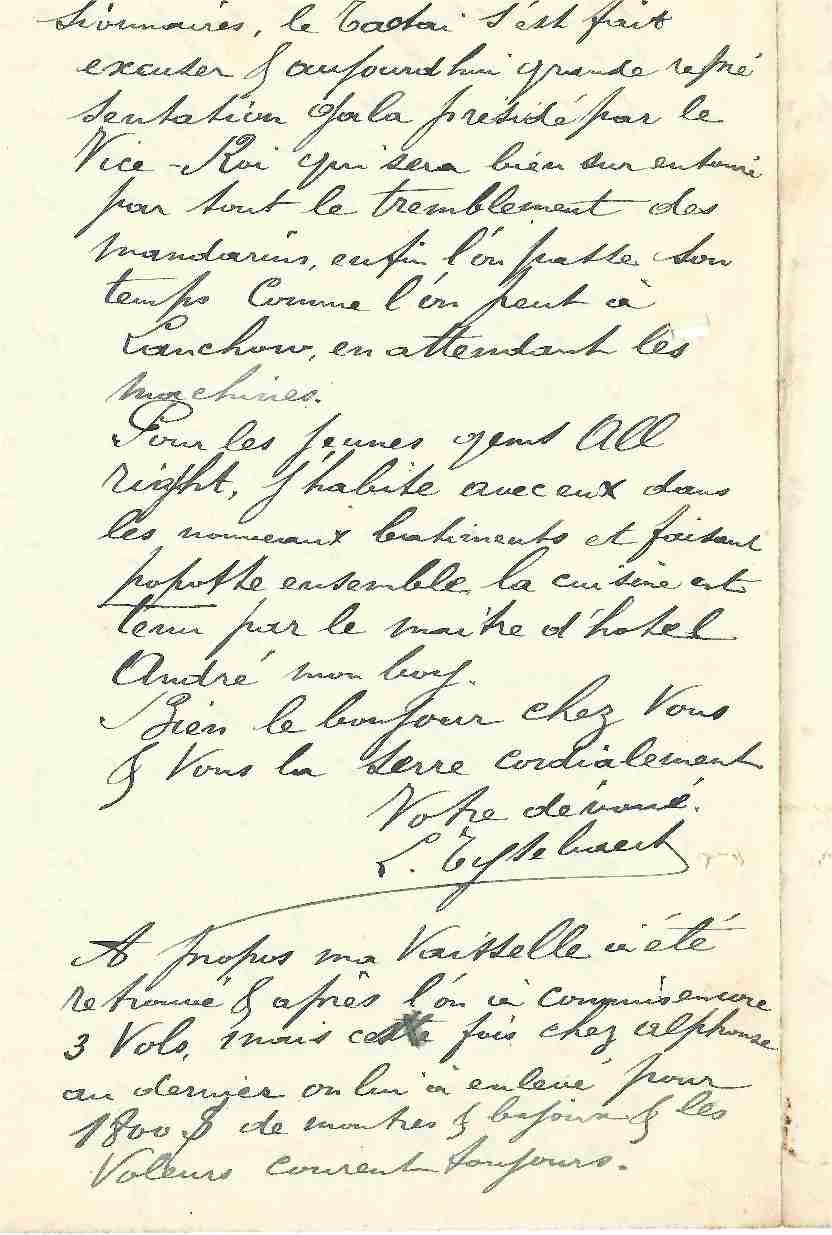 sionnaires, le Tadtai s'est fait
excuser & aujourdhui grande repré
sentation Gala présidé par le
Vice-Roi qui sera bien sur entouré
par tout le tremblement des
mandarins, enfin l'on passe son
temps comme l'on peut à
Lanchow, en attendant les
machines.
Pour les jeunes gens All
right, j'habite avec eux dans
les nouveaux batiments et faisant
popotte ensemble la cuisine est
tenu par le maître d'hotel
André mon boy.
Bien le bonjour chez Vous
& Vous la serre cordialement
Votre dévoué.
L. Eystebaert
A propos ma Vaisselle à été
retrouvé & après l'on à commis encore
3 Vols, mais cette fois chez alphonse
au dernier on lui à enlevé pour
1800 $ de montres & bijoux & les
Voleurs courent toujours.